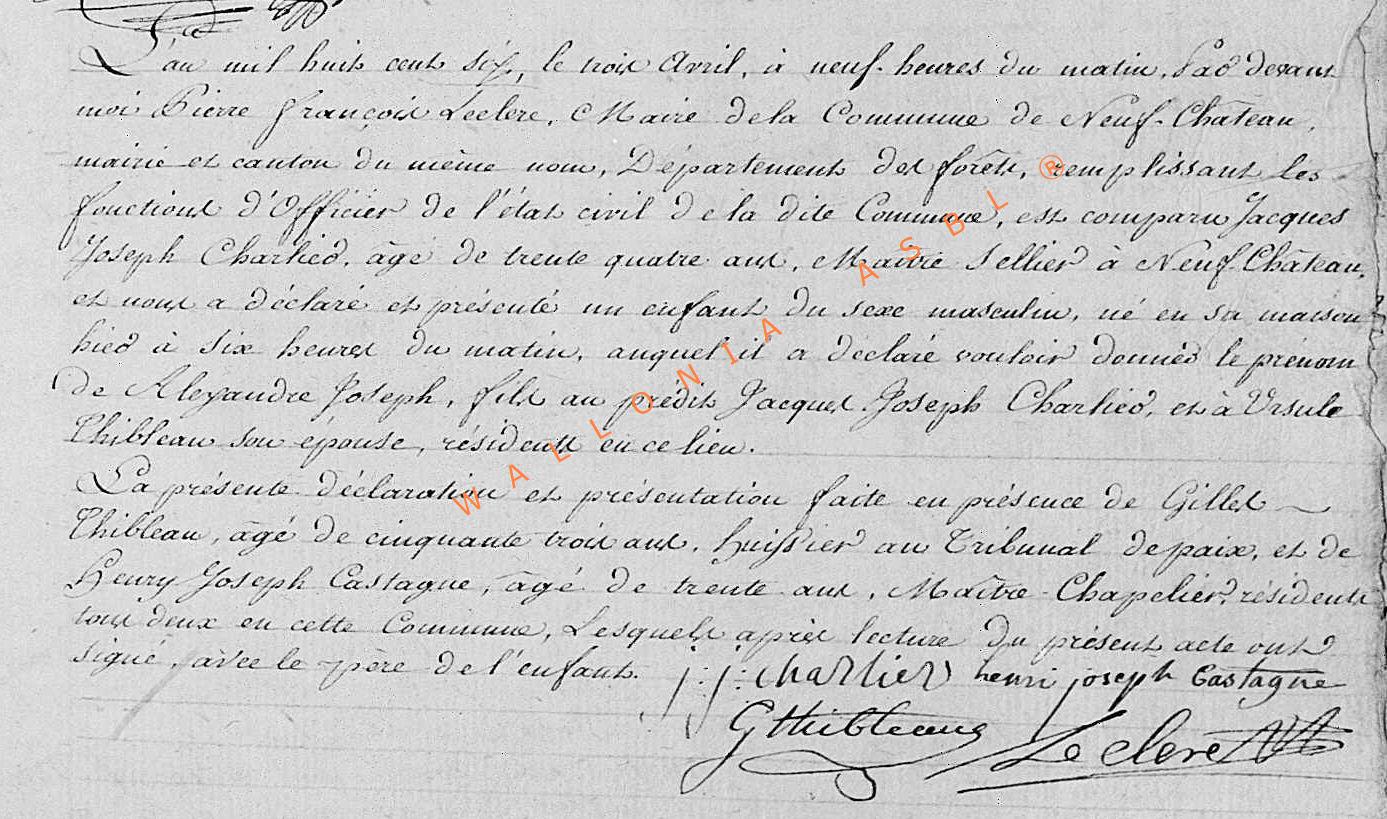 L'an mil huit cent six, le trois Avril, à neuf heures du matin, Pardevant
moi Pierre François Leclere, Maire de la Commune de Neuf-Château,
mairie et canton du même nom, Département des forêts, remplissant les
fonctions d'Officier de l'état civil de la dite Commune, est comparu Jacques
Joseph Charlier, âgé de trente quatre ans, Maître Sellier à Neuf-Château,
et nous a déclaré et présenté un enfant du sexe masculin, né en sa maison
hier à six heures du matin, auquel il a déclaré vouloir donner le prénom
de Alexandre Joseph, fils au prédit Jacques Joseph Charlier, et à Ursule
Thibleau son épouse, résidents en ce lieu.
La présente déclaration et présentation faite en présence de Gilles
Thibleau, âgé de cinquante trois ans, huissier au Tribunal de paix, et de
Henry Joseph Castagne, âgé de trente ans, Maître Chapelier, résidents
tous deux en cette Commune, Lesquels après lecture du présent acte ont
signé, avec le père de l'enfant. j:j: charlier henri joseph Castagne
G Thibleau Leclere
WALLONIA ASBL ®